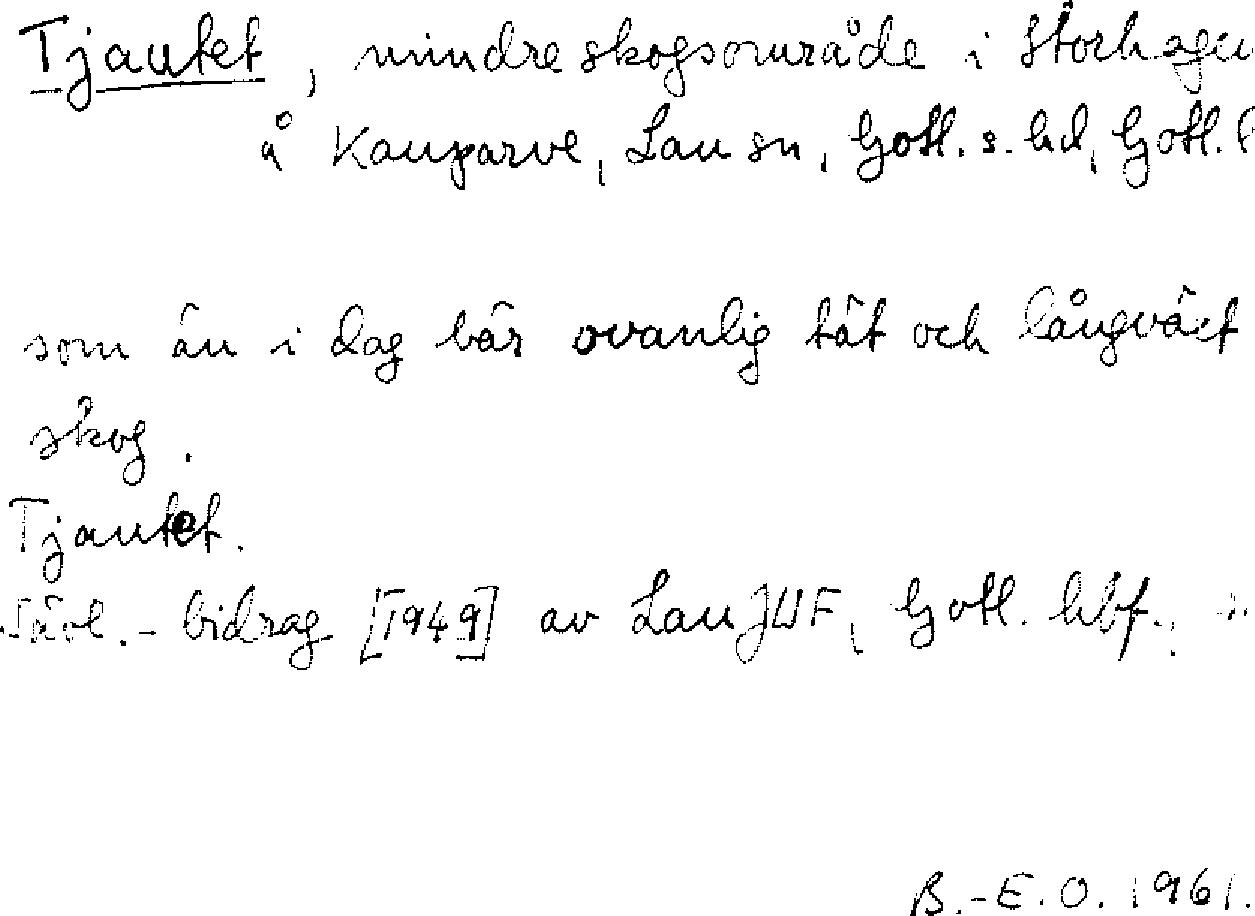 Tjautet, mindre skogsområde i Storhagen
å Kauparve, Lau sn, Gotl. s. hd, Gotl. l
som än i dag bär ovanlig tät och långväxt
skog.
Tjautet.
Tävl.-bidrag [1949] av Lau JUF, Gotl. hbf.,
B.-E.O. 1961.